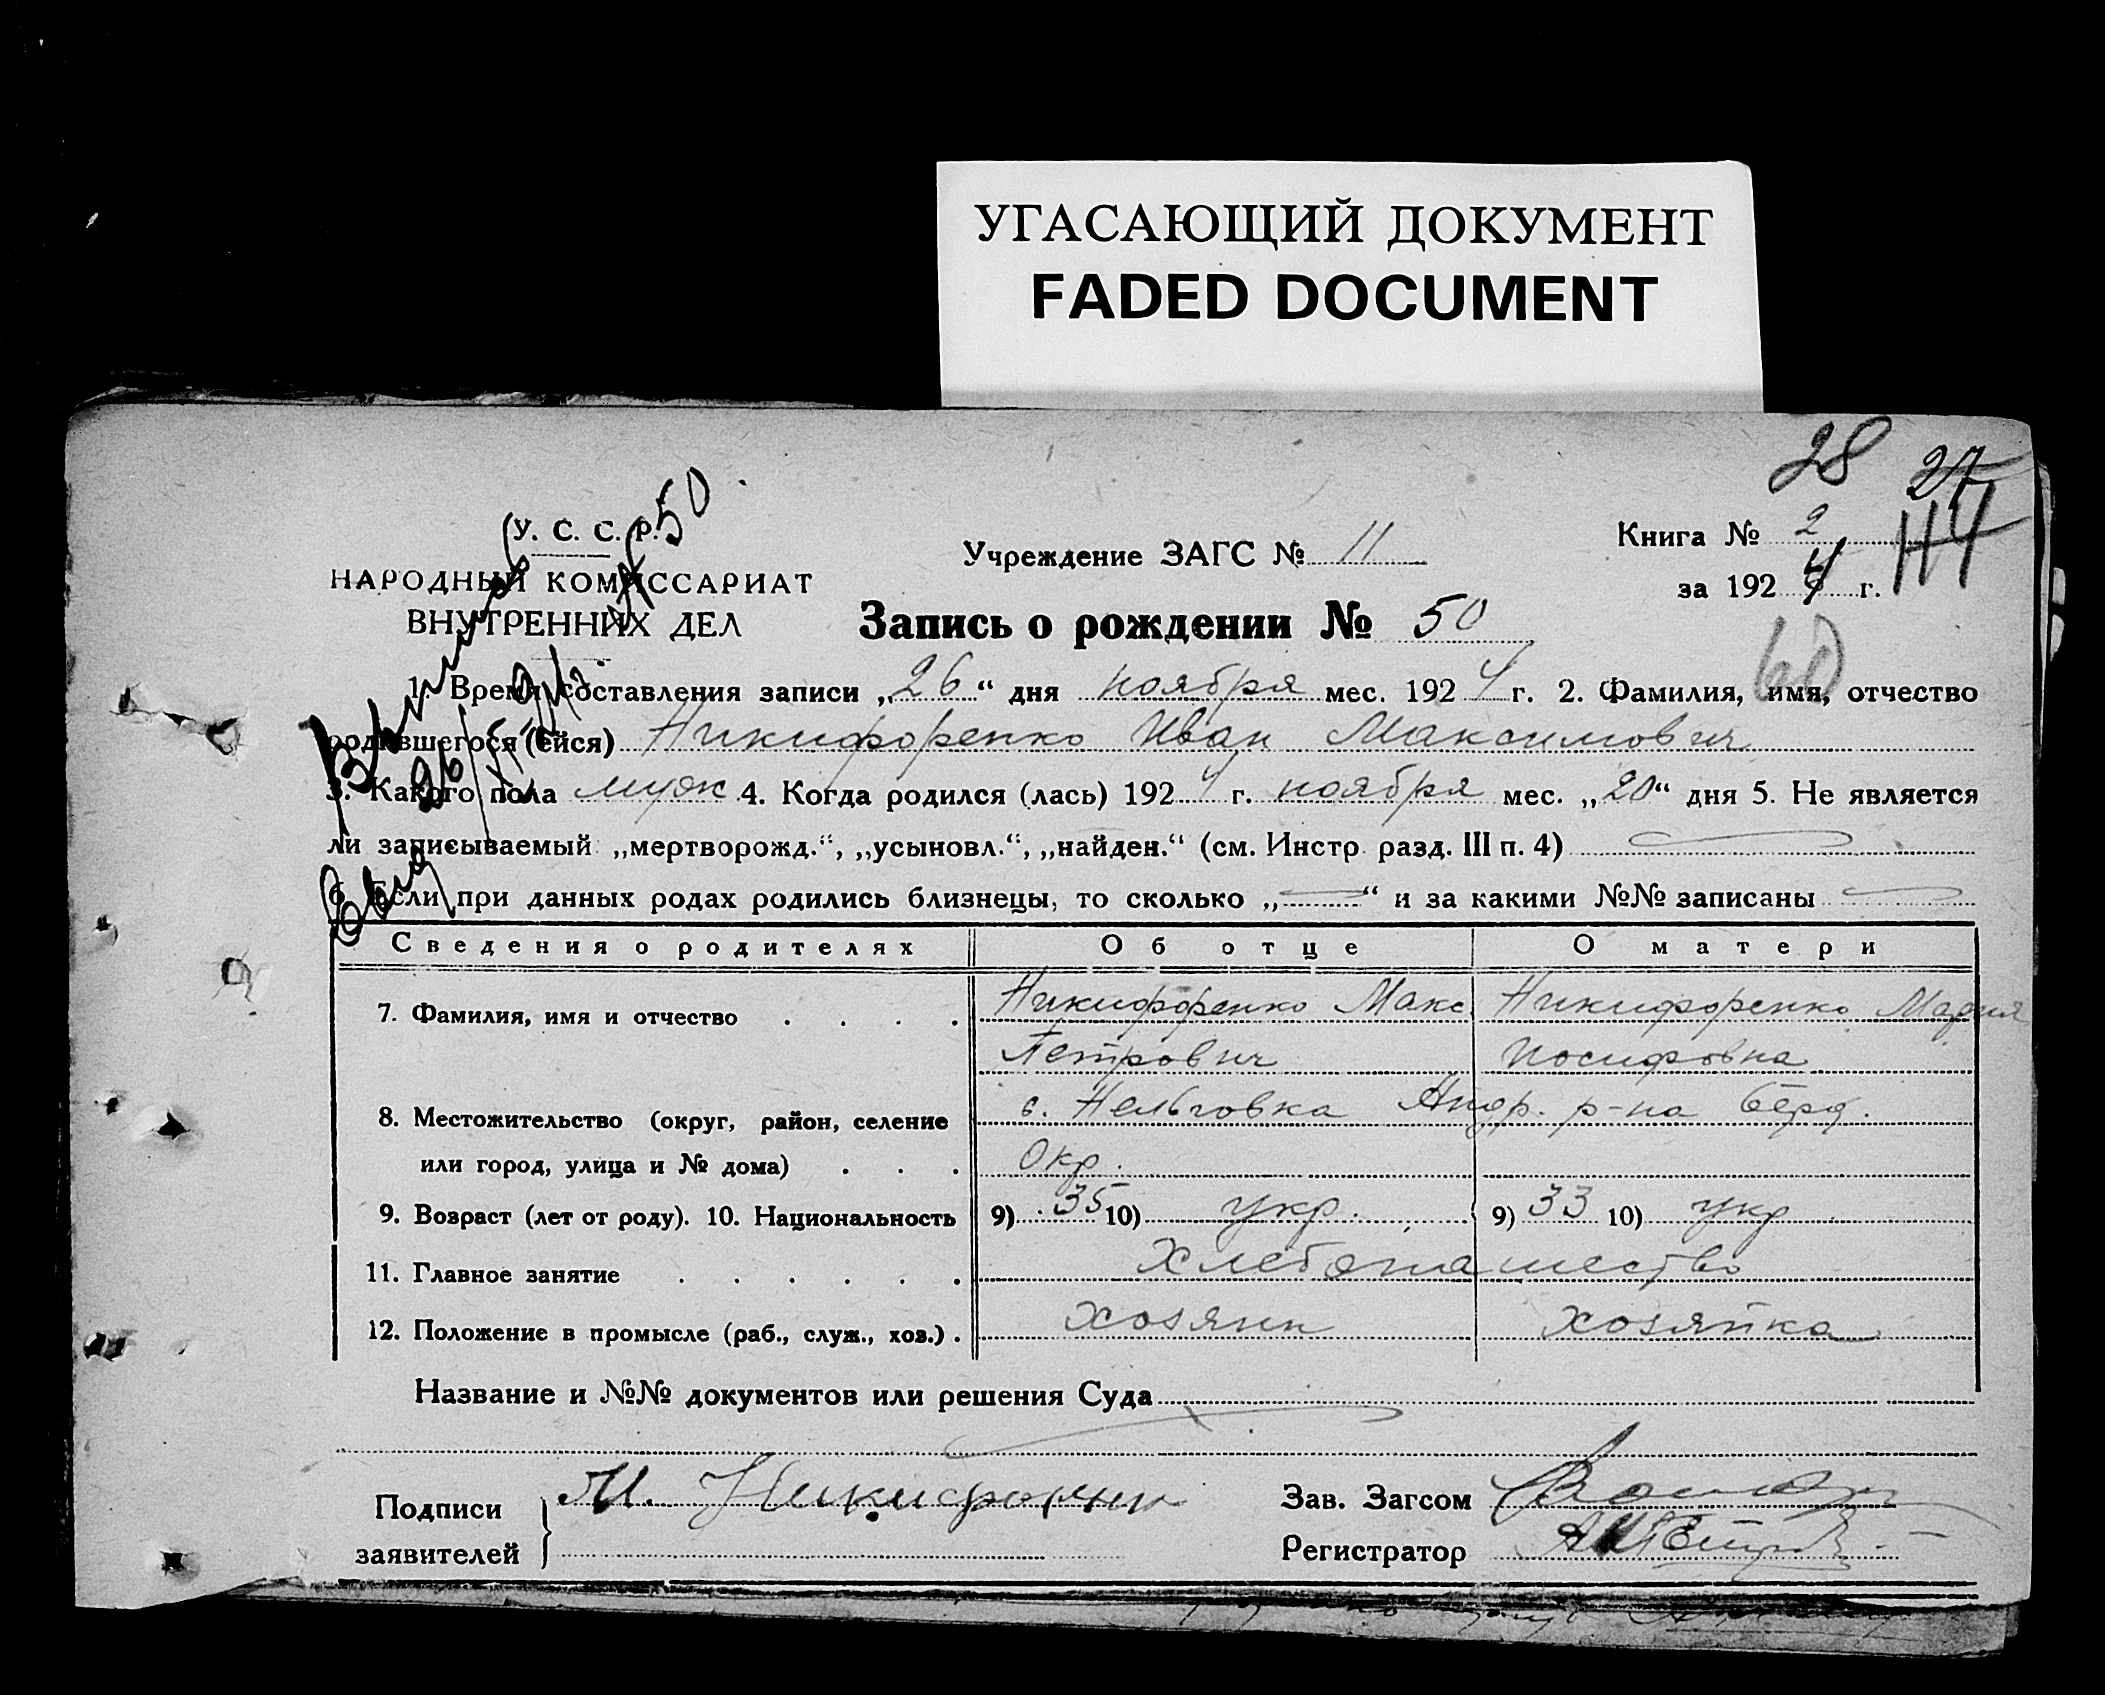 УГАСАЮЩИЙ ДОКУМЕНТ
FADED DOCUMENT
28 27
114
У. С. С. Р.
НАРОДНЫЙ КОМИССАРИАТ
ВНУТРЕННИХ ДЕЛ
№ 50
Учреждение ЗАГС № 11
Книга № 2
за 1924 г.
Запись о рождении № 50
60
1. Время составления записи „26“ дня ноября мес. 1924 г. 2. Фамилия, имя, отчество
родившегося (ейся) Никифоренко Иван Максимович
3. Какого пола муж 4. Когда родился (лась) 1924 г. ноября мес. „20“ дня 5. Не является
ли записываемый „мертворожд.“, „усыновл.“, „найден.“ (см. Инстр. разд. III п. 4)
6. Если при данных родах родились близнецы, то сколько „—“ и за какими №№ записаны —
Сведения о родителях Об отце О матери
7. Фамилия, имя и отчество . . . . Никифоренко Макс Никифоренко Мария
Петрович Иосифовна
8. Местожительство (округ, район, селение с. Нельговка Андр. р-на Берд.
или город, улица и № дома) . . . Окр.
9. Возраст (лет от роду). 10. Национальность 9) 35 10) укр. 9) 33 10) укр
11. Главное занятие . . . . . . Хлебопашество
12. Положение в промысле (раб., служ., хоз.) . хозяин хозяйка
Название и №№ документов или решения Суда
Подписи заявителей М.
Зав. Загсом
Регистратор